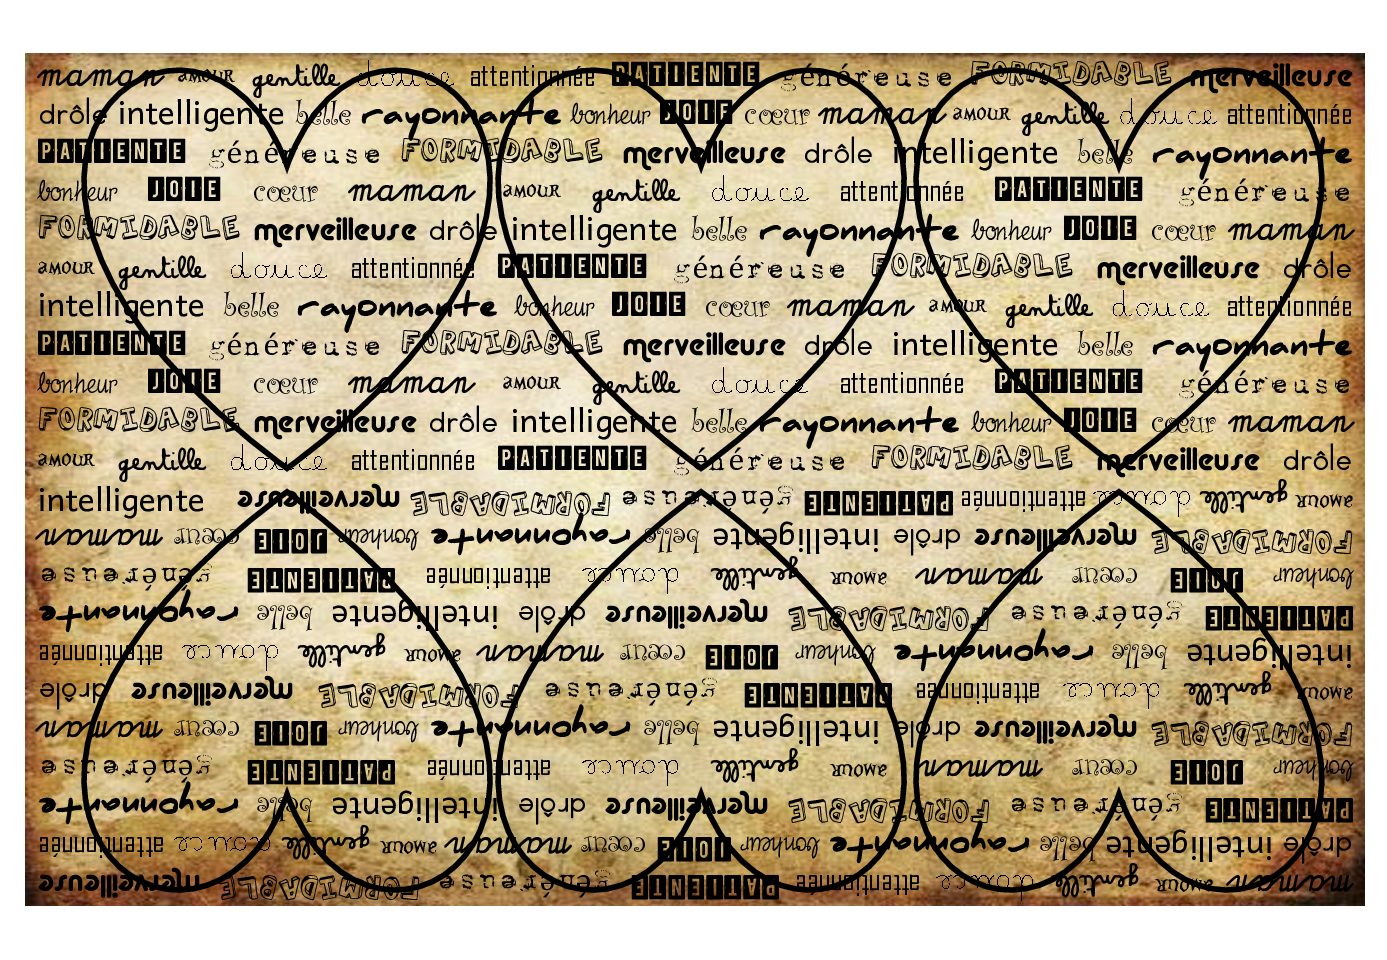 maman amour gentille douce attentionnée PATIENTE généreuse FORMIDABLE merveilleuse
drôle intelligente belle rayonnante bonheur JOIE cœur maman amour gentille douce attentionnée
PATIENTE généreuse FORMIDABLE merveilleuse drôle intelligente belle rayonnante
bonheur JOIE cœur maman amour gentille douce attentionnée PATIENTE généreuse
FORMIDABLE merveilleuse drôle intelligente belle rayonnante bonheur JOIE cœur maman
amour gentille douce attentionnée PATIENTE généreuse FORMIDABLE merveilleuse drôle
intelligente belle rayonnante bonheur JOIE cœur maman amour gentille douce attentionnée
PATIENTE généreuse FORMIDABLE merveilleuse drôle intelligente belle rayonnante
bonheur JOIE cœur maman amour gentille douce attentionnée PATIENTE généreuse
FORMIDABLE merveilleuse drôle intelligente belle rayonnante bonheur JOIE cœur maman
amour gentille douce attentionnée PATIENTE généreuse FORMIDABLE merveilleuse drôle
intelligente
maman amour gentille douce attentionnée PATIENTE généreuse FORMIDABLE merveilleuse
drôle intelligente belle rayonnante bonheur JOIE cœur maman amour gentille douce attentionnée
PATIENTE généreuse FORMIDABLE merveilleuse drôle intelligente belle rayonnante
bonheur JOIE cœur maman amour gentille douce attentionnée PATIENTE généreuse
FORMIDABLE merveilleuse drôle intelligente belle rayonnante bonheur JOIE cœur maman
amour gentille douce attentionnée PATIENTE généreuse FORMIDABLE merveilleuse drôle
intelligente belle rayonnante bonheur JOIE cœur maman amour gentille douce attentionnée
PATIENTE généreuse FORMIDABLE merveilleuse drôle intelligente belle rayonnante
bonheur JOIE cœur maman amour gentille douce attentionnée PATIENTE généreuse
FORMIDABLE merveilleuse drôle intelligente belle rayonnante bonheur JOIE cœur maman
amour gentille douce attentionnée PATIENTE généreuse FORMIDABLE merveilleuse